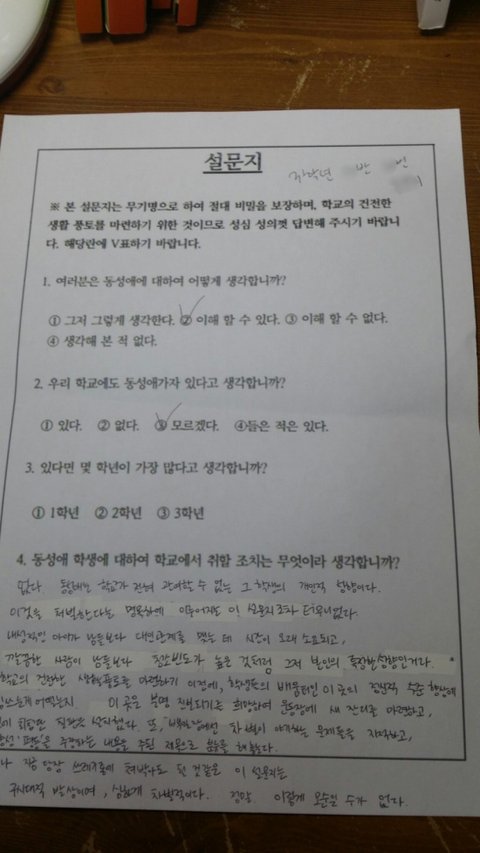 설문지
학년 반 번
※ 본 설문지는 무기명으로 하여 절대 비밀을 보장하며, 학교의 건전한
생활 풍토를 마련하기 위한 것이므로 성심 성의껏 답변해 주시기 바랍니
다. 해당란에 V표하기 바랍니다.
1. 여러분은 동성애에 대하여 어떻게 생각합니까?
① 그저 그렇게 생각한다. ② 이해 할 수 있다. ③ 이해 할 수 없다.
④ 생각해 본 적 없다.
2. 우리 학교에도 동성애가자 있다고 생각합니까?
① 있다. ② 없다. ③ 모르겠다. ④들은 적은 있다.
3. 있다면 몇 학년이 가장 많다고 생각합니까?
① 1학년 ② 2학년 ③ 3학년
4. 동성애 학생에 대하여 학교에서 취할 조치는 무엇이라 생각합니까?
없다. 동성애는 학교가 전혀 관여할 수 없는 그 학생의 개인적 성향이다.
이것을 처벌한다는 명목하에 이루어지는 이 설문지조차 터무니없다.
내성적인 아이가 남들보다 대인관계를 맺는 데 시간이 오래 소요되고,
깔끔한 사람이 남들보다 청소빈도가 높은 것처럼 그저 본인의 특정한 성향인거다.
학교의 건전한 생활풍토를 마련하기 이전에, 학생들의 배움터인 이 곳의 정신적 수준 향상에
힘쓰는게 어떻는지 이 곳은 분명 희망하여 운동장에 새 잔디를 마련하고,
또, 차별이 야기하는 문제들을 지적하고,
주장하는 내용을 주된 제목으로
당장 쓰레기통에 처박아도 될 것같은 이 설문지는
구시대적 발상이며, 심하게 차별적이다. 정말 이렇게 모순일 수가 없다.